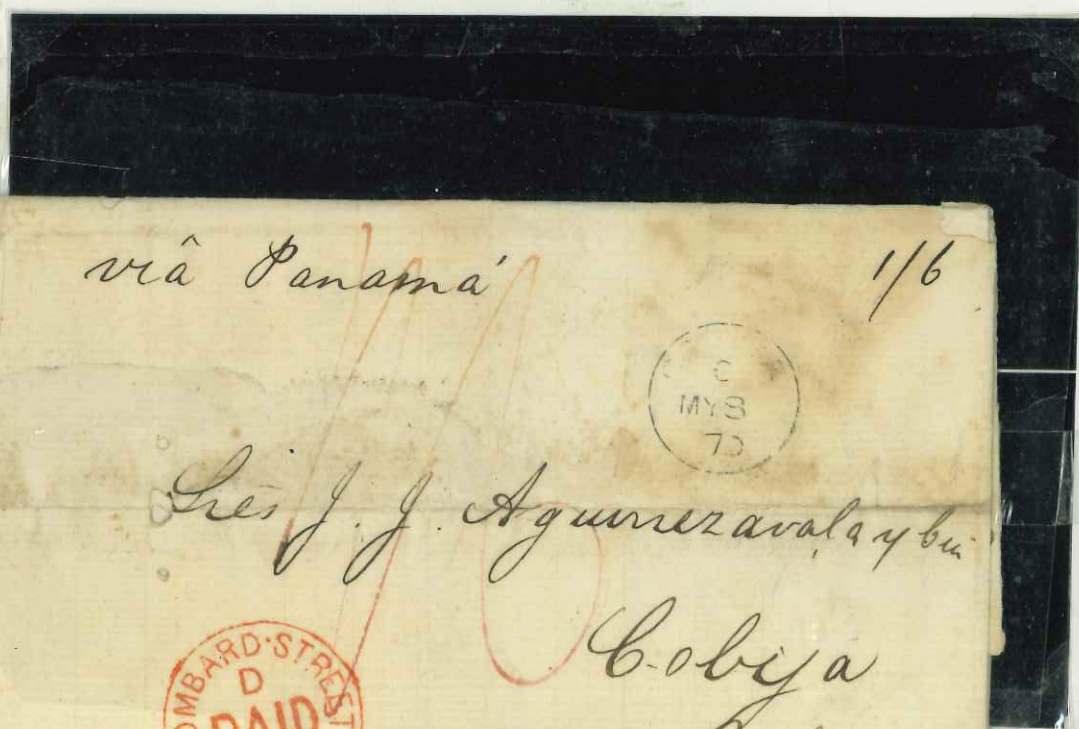 viâ Panamá
1/6
C
MY 8
70
Sres J. J. Aguirrezavala y Cia
Cobija
LOMBARD·STREET
D
PAID